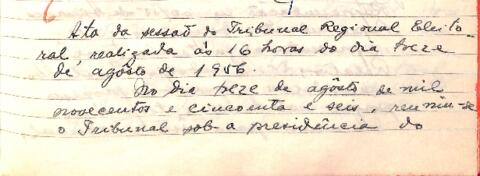 Ata da sessão do Tribunal Regional Eleito-
ral, realizada às 16 horas do dia treze
de agôsto de 1956.
No dia treze de agôsto de mil
novecentos e cincoenta e seis, reuniu-se
o Tribunal sob a presidência do